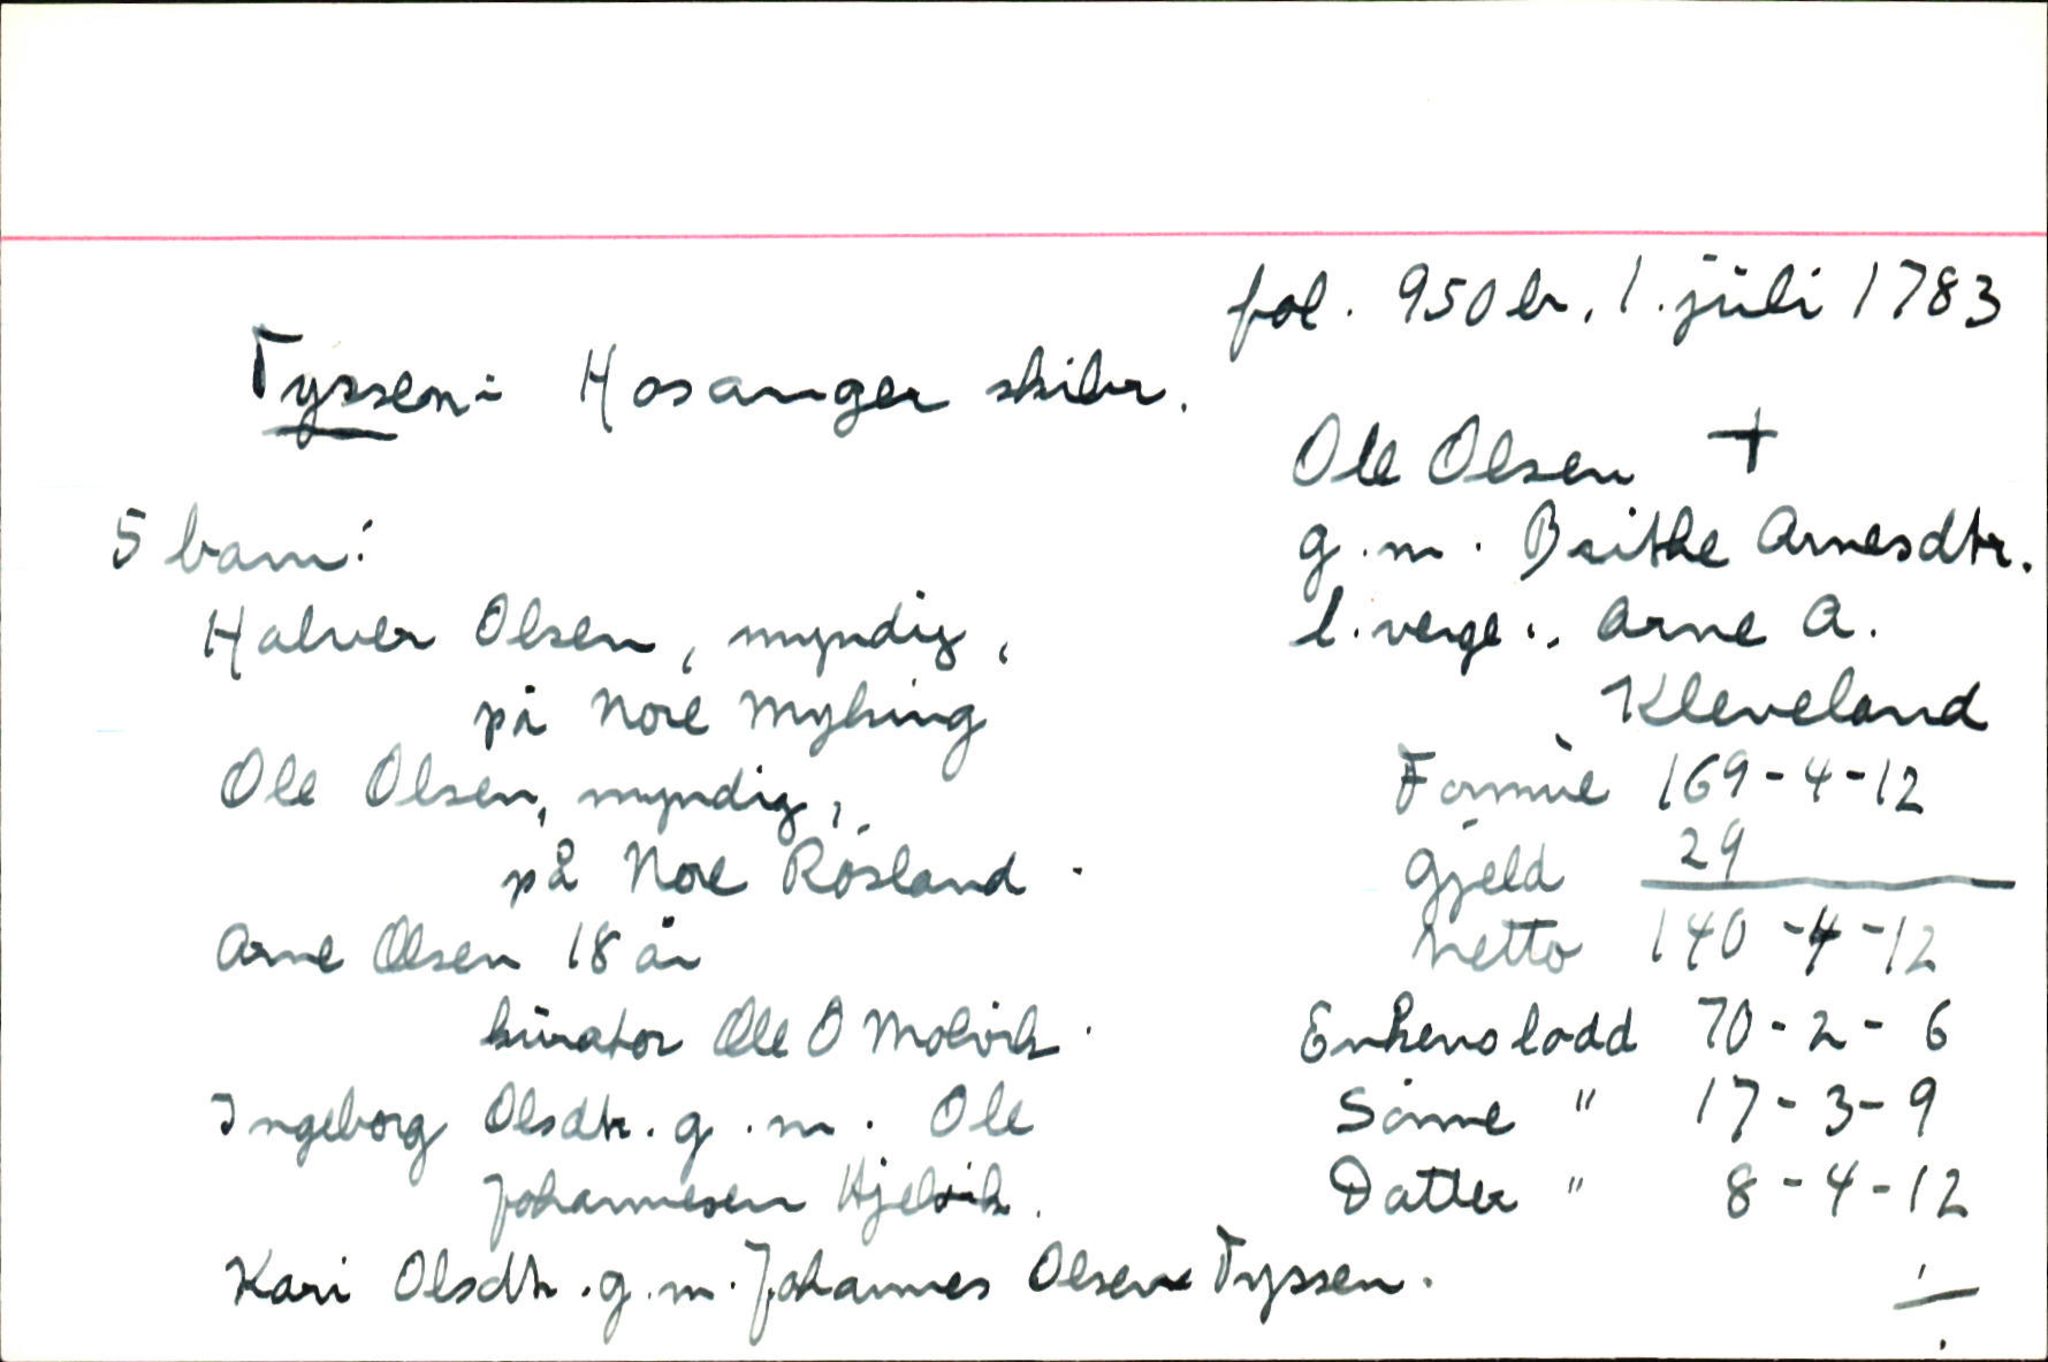 fol. 950 b, 1. juli 1783
Tyssen i Hosanger skibr.
Ole Olsen +
g.m. Brithe Arnesdtr.
l. verge: Arne A.
Kleveland
5 barn:
Halver Olsen, myndig,
på Nore Myking
Ole Olsen, myndig,
på Nore Røsland.
Arne Olsen 18 år
kurator Ole O Molvik.
Ingeborg Olsdtr. g.m. Ole
Johannesen Hjelvik.
Kari Olsdtr. g.m. Johannes Olsen Tyssen.
Formue 169-4-12
Gjeld 29
Netto 140-4-12
Enkens lodd 70-2-6
Sønne " 17-3-9
Datter " 8-4-12